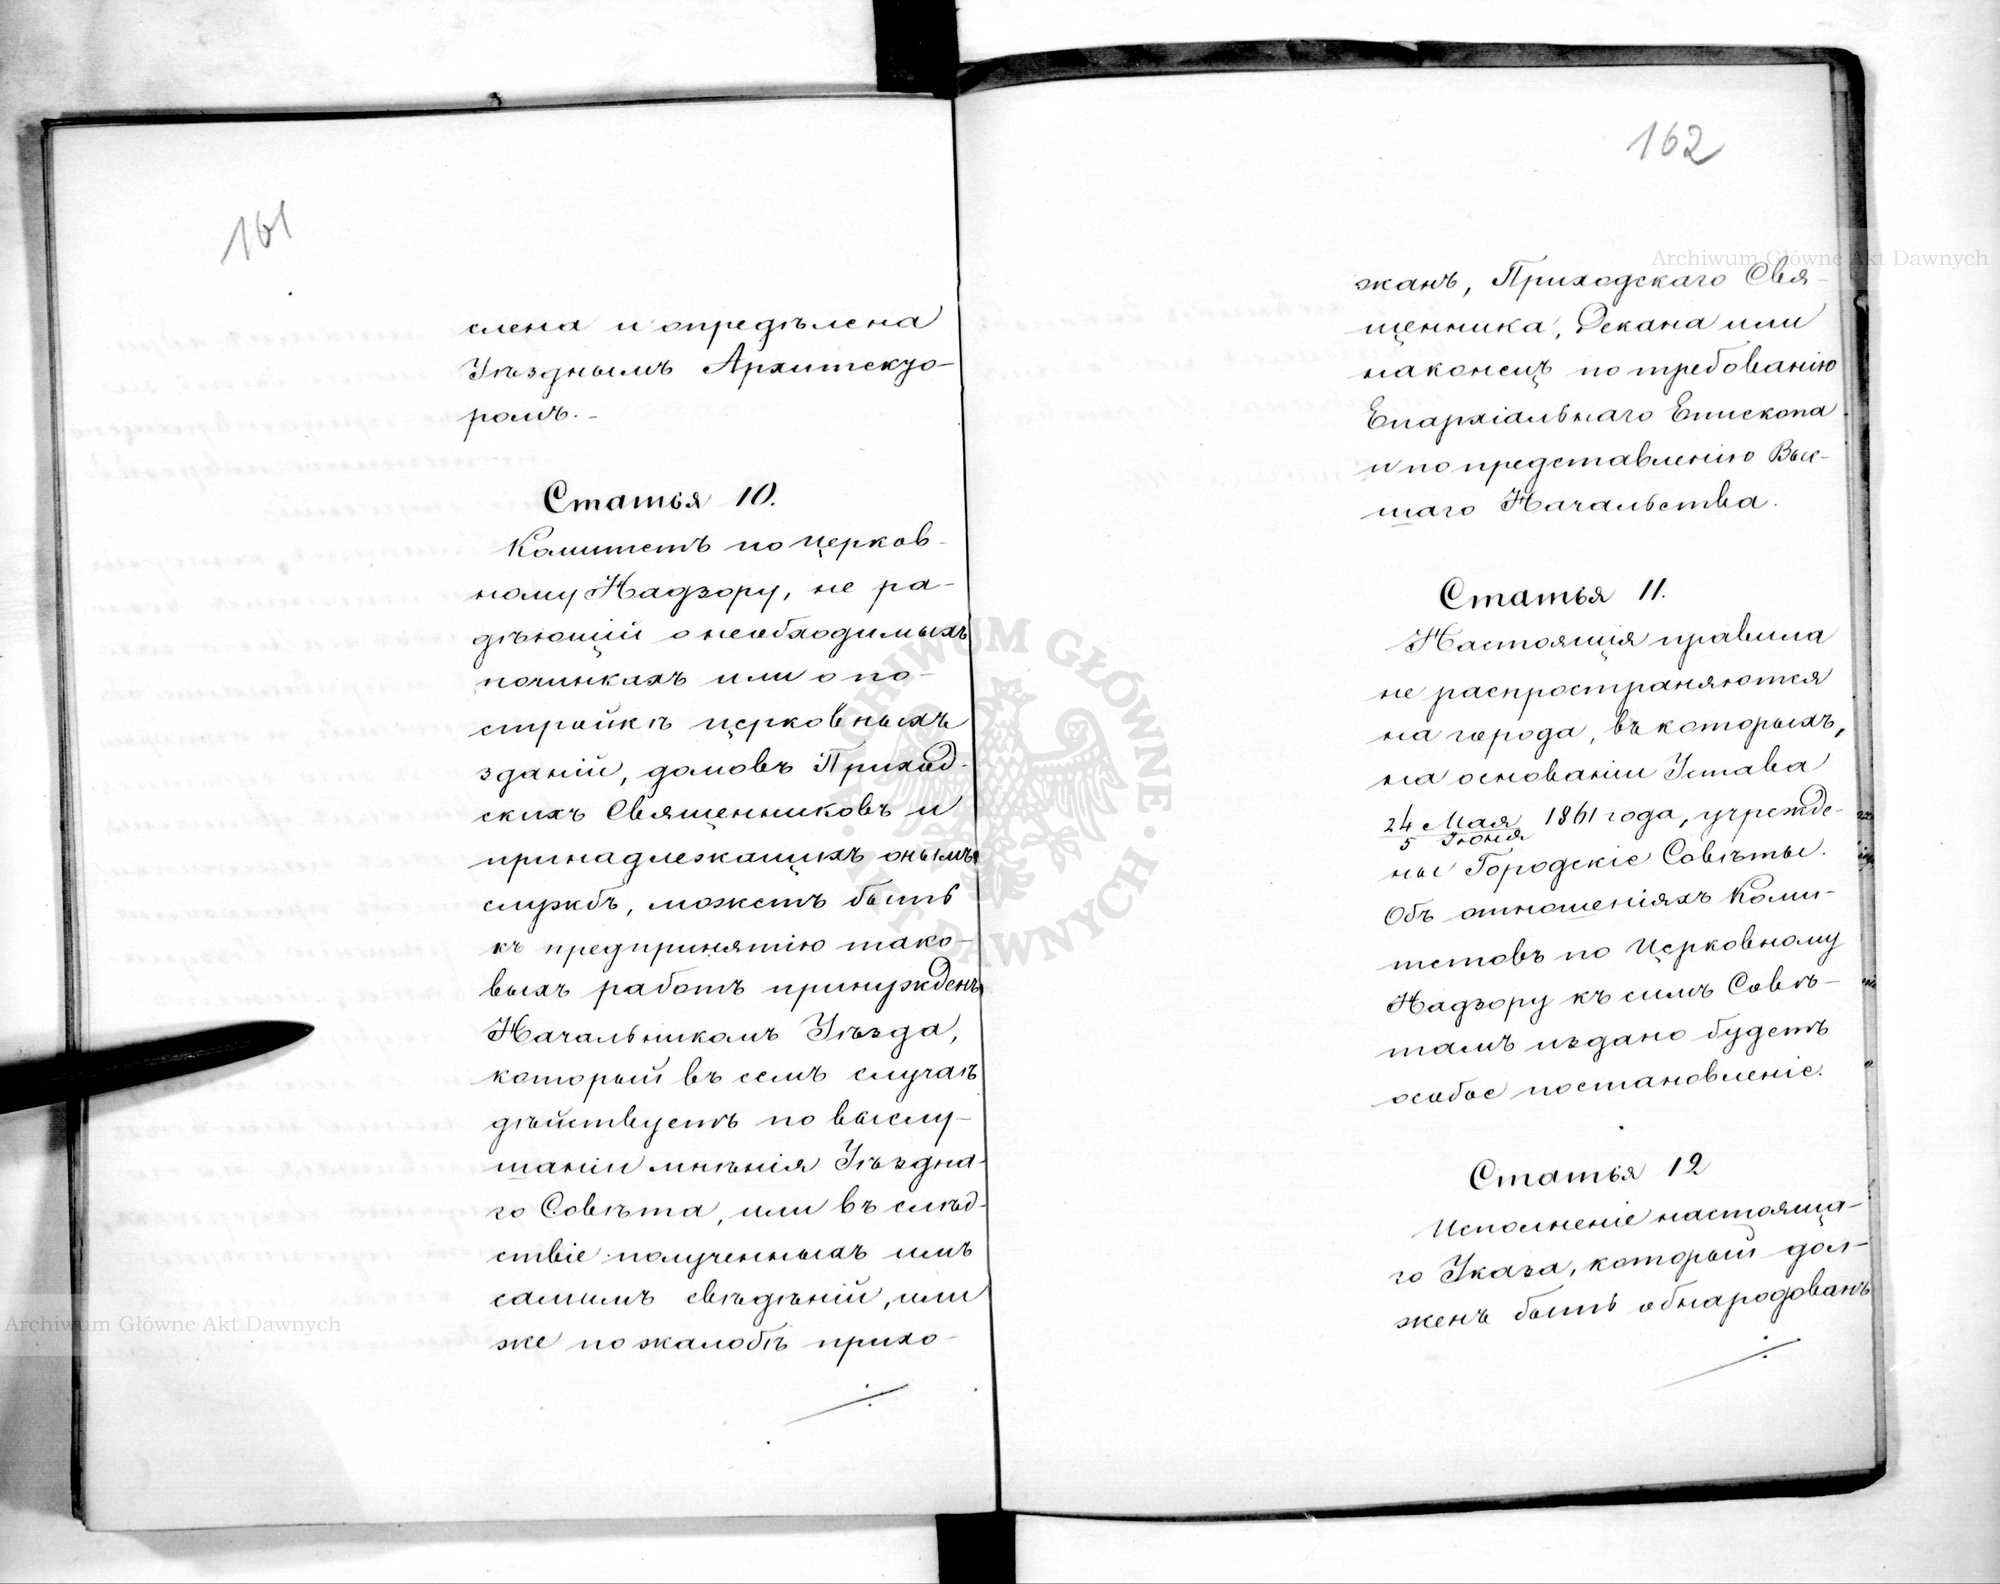 161
слена и опредѣлена
Уѣзднымъ Архитекто-
ромъ.-
Статья 10.
Комитетъ по церков-
ному Надзору, не ра-
дѣющій о необходимыхъ
починкахъ или о по-
стройкѣ церковныхъ
зданій, домовъ Приход-
скихъ Священниковъ и
принадлежащихъ онымъ
службъ, можетъ быть
къ предпринятію тако-
выхъ работъ принужденъ
Начальникомъ Уѣзда,
который въ семъ случаѣ
дѣйствуетъ по выслу-
шаніи мнѣнія Уѣздна-
го Совѣта, или въ слѣд-
ствіе полученныхъ имъ
самимъ свѣдѣній, или
же по жалобѣ прихо-
162
жанъ, Приходскаго Свя-
щенника, Декана или
наконецъ по требованію
Епархіальнаго Епископа
и по представленію Выс-
шаго Начальства.
Статья 11.
Настоящія правила
не распространяются
на города, въ которыхъ,
на основаніи Устава
24 Мая 1861 года, учрежде-
5 Іюня
ны Городскіе Совѣты.
Объ отношеніяхъ Коми-
тетовъ по Церковному
Надзору къ симъ Совѣ-
тамъ издано будетъ
особое постановленіе.
Статья 12
Исполненіе настояща-
го Указа, который дол-
женъ быть обнародованъ
Archiwum Główne Akt Dawnych
Archiwum Główne Akt Dawnych
ARCHIWUM GŁÓWNE AKT DAWNYCH